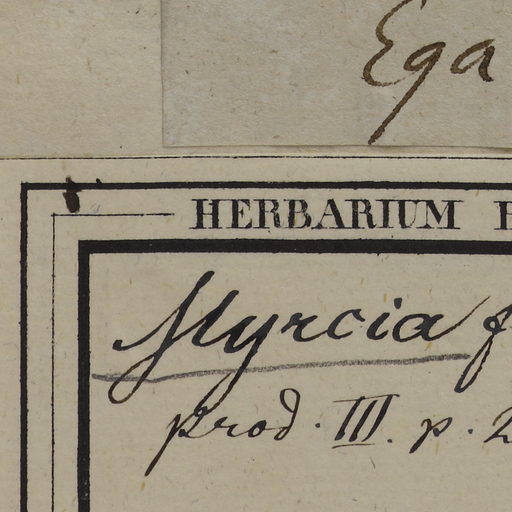 Ega
HERBARIUM
Myrcia
prod. III. p. 2